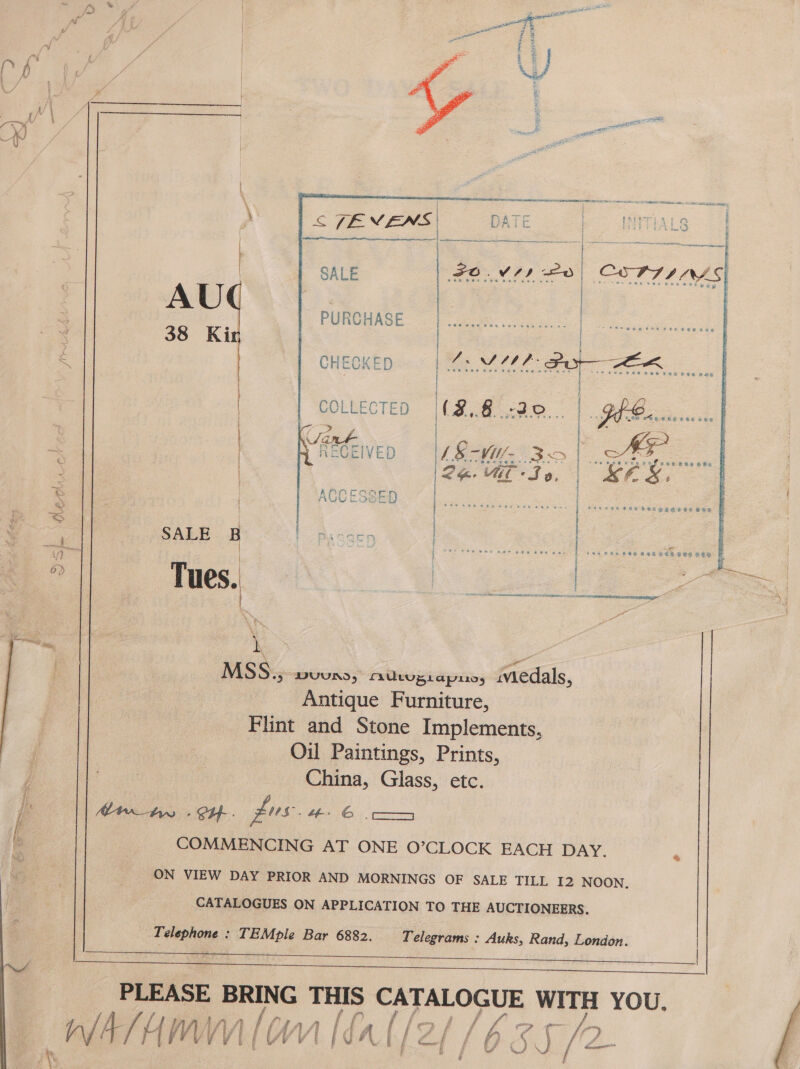 Comins
Duplicate
STEVENS DATE INITIALS
SALE 30. VII 30 COTTINS
PURCHASE
CHECKED
COLLECTED 18.8.30
RECEIVED 18-VIII-30
26. VIII . 30.
ACCESSED
PASSED
AUC
38 Kin
SALE B
Tues.
25/- deducted for missing items
MSS., Books, Autographs, Medals,
Antique Furniture,
Flint and Stone Implements,
Oil Paintings, Prints,
China, Glass, etc.
£115. 4. 6
COMMENCING AT ONE O'CLOCK EACH DAY.
ON VIEW DAY PRIOR AND MORNINGS OF SALE TILL 12 NOON.
CATALOGUES ON APPLICATION TO THE AUCTIONEERS.
Telephone : TEMple Bar 6882. Telegrams : Auks, Rand, London.
PLEASE BRING THIS CATALOGUE WITH YOU.
WA/HMM/CM/Sal/21/635/2